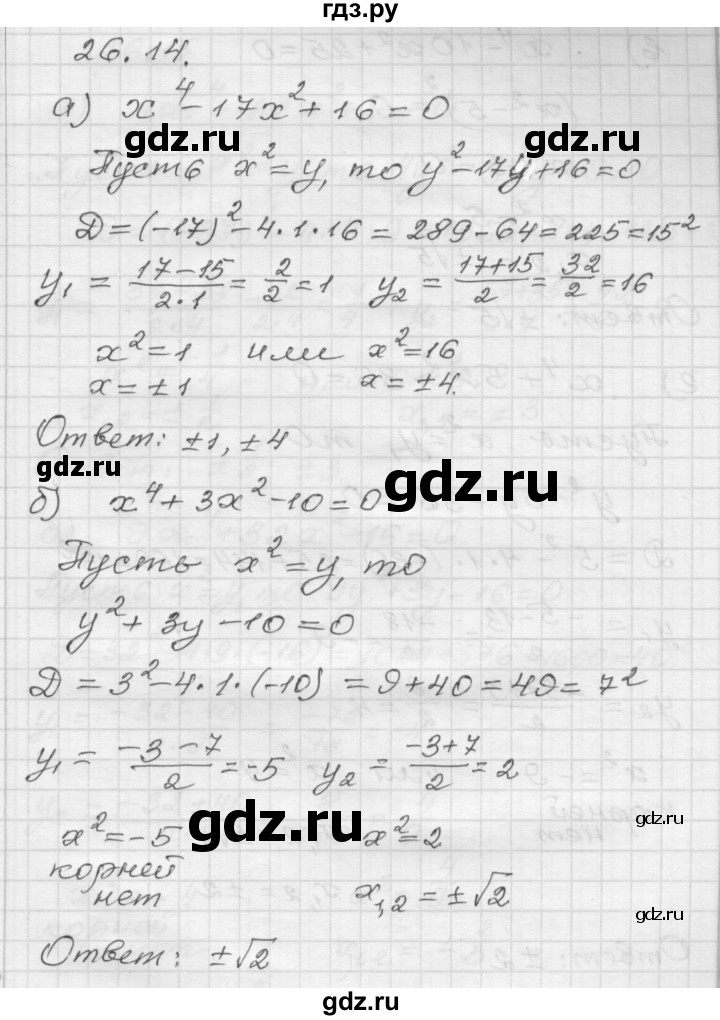 гдз.ру
26.14.
а) x⁴ - 17x² + 16 = 0
gdz.ru gdz.ru
Пусть x² = y, то y² - 17y + 16 = 0
D = (-17)² - 4·1·16 = 289 - 64 = 225 = 15²
y₁ = (17-15)/(2·1) = 2/2 = 1 y₂ = (17+15)/2 = 32/2 = 16
x² = 1 или x² = 16
x = ±1 x = ±4.
Ответ: ±1, ±4
gdz.ru gdz.ru
б) x⁴ + 3x² - 10 = 0
Пусть x² = y, то
y² + 3y - 10 = 0
D = 3² - 4·1·(-10) = 9 + 40 = 49 = 7²
y₁ = (-3-7)/2 = -5 y₂ = (-3+7)/2 = 2
gdz.ru gdz.ru
x² = -5 x² = 2
корней
нет x₁,₂ = ±√2
gdz.ru
Ответ: ±√2
gdz.ru